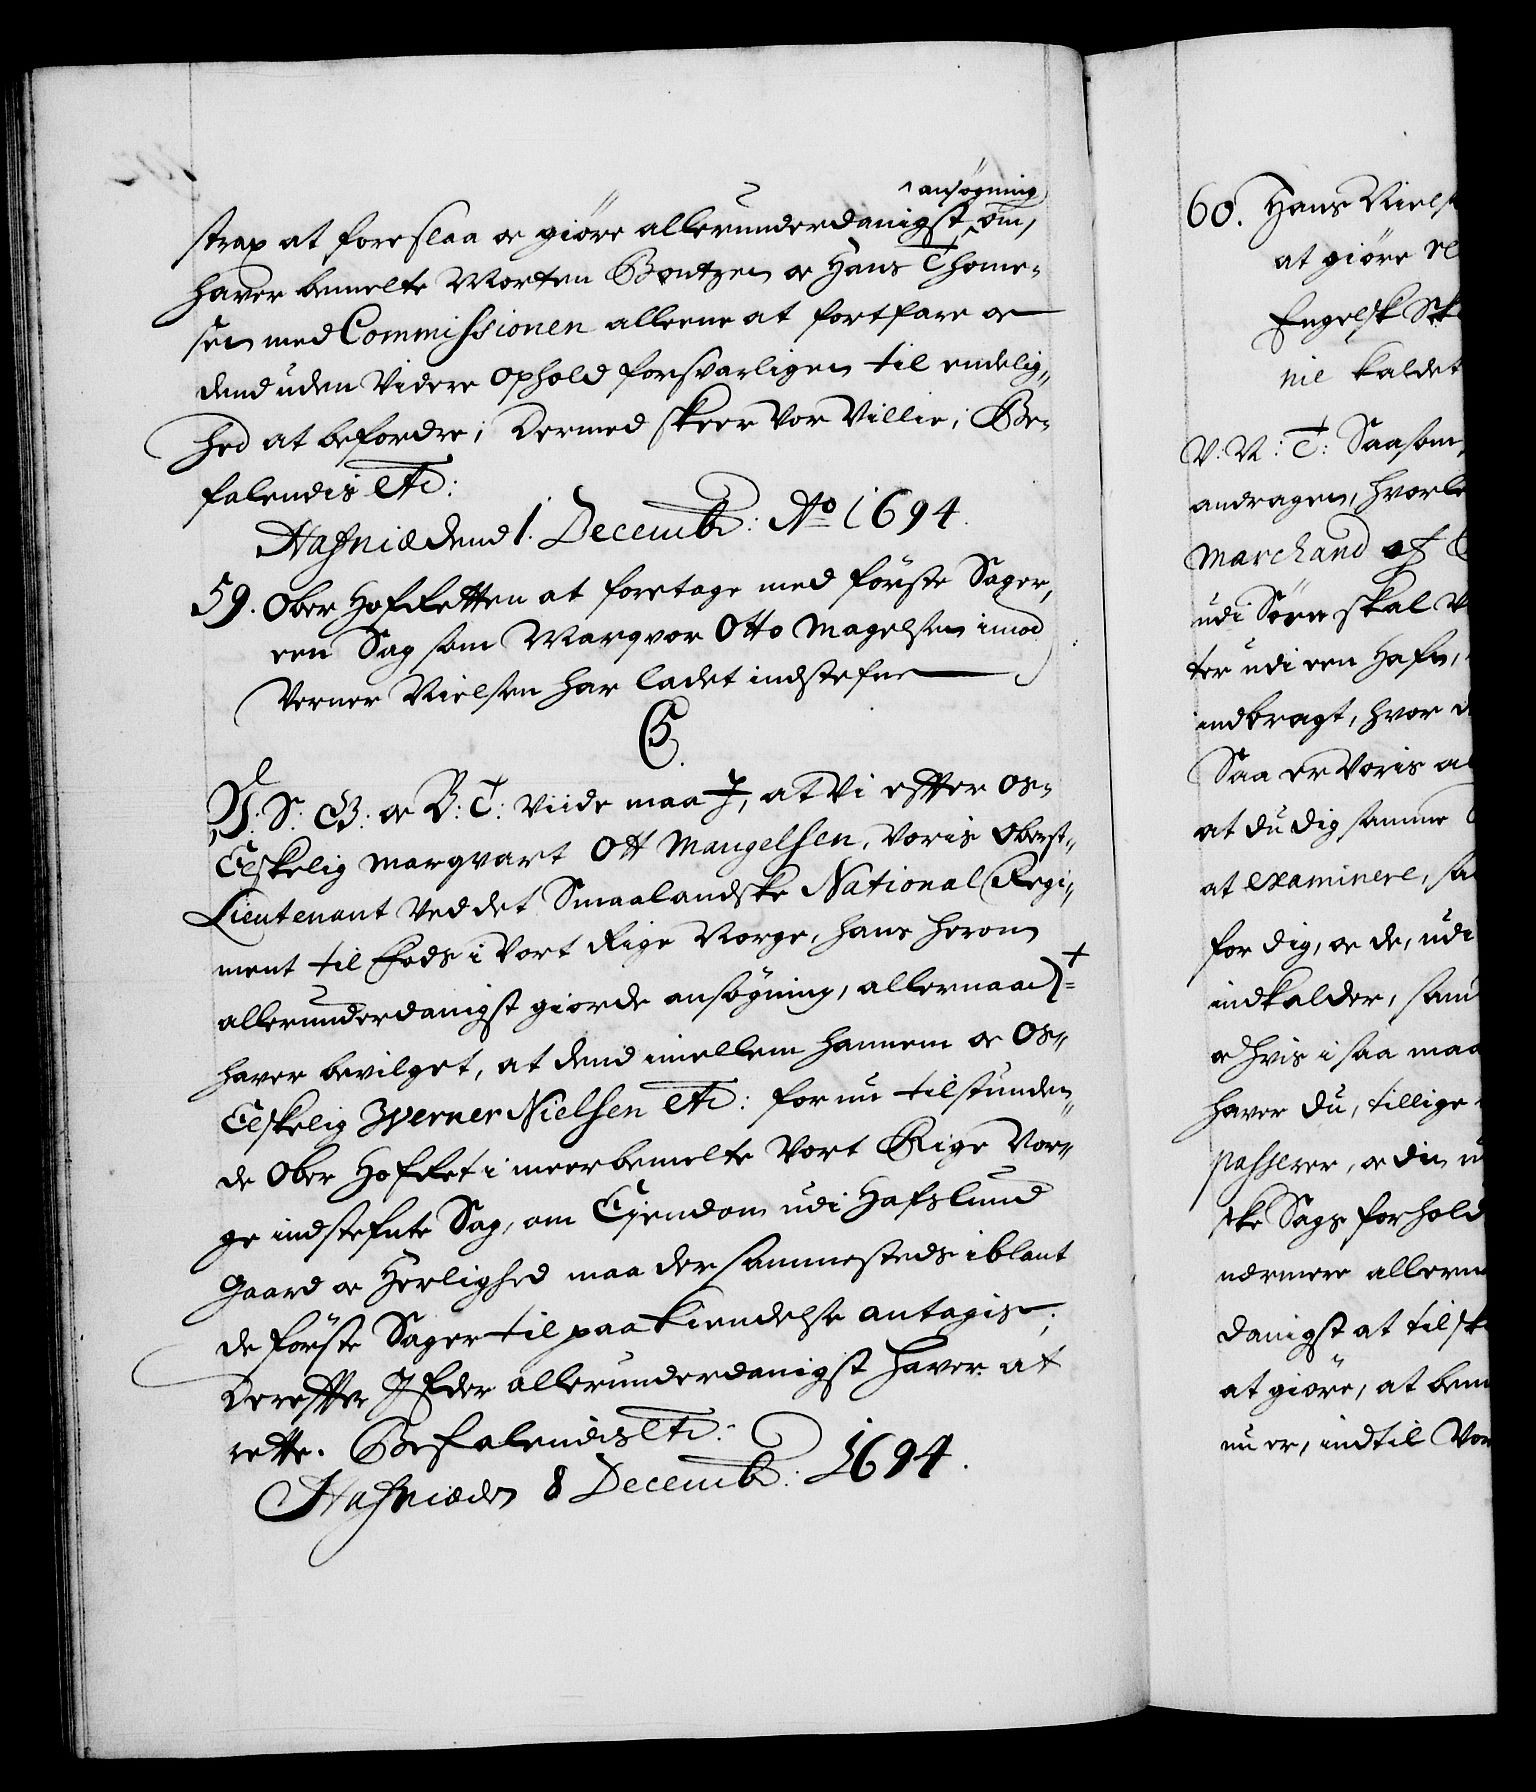 ansøgning
strax at foreslaa oc giöre allerunderdanigst om,
haver bemelte Morten Bentzen oc Hans Thome-
sen med Commissionen alleene at fortfare oc
dend uden Videre Ophold forsvarligen til endelig-
hed at befordre; Dermed skeer Vor Villie, Be-
falendis etc:
Hafniæ dend 1. Decembr: Ao 1694.
59. Ober Hof Retten at foretage med förste Sager,
een Sag som Marqvor Otto Magelsen imod
Verner Nielsen har ladet indstefne
C5
V: S: G: oc B: T: Viide maa I, at Vi effter Os-
Elskelig Marqvart Ott Mangelsen, Voris Oberst-
Lieutenant Ved det Smaalandske National Regi-
ment til Fods i Vort Rige Norge, hans herom
allerunderdanigst giorde ansögning, allernaad-
haver bevilget, at dend imellem hannem oc Os-
Elskelig Werner Nielsen etc: for nu tilstunden-
de Ober Hof Ret i meerbemelte Vort Rige Nor-
ge indstefnte Sag, om Ejendom udi Hafslund
Gaard oc Herlighed maa der sammesteds iblant
de förste Sager til paakiendelse antagis;
Dereffter I Eder allerunderdanigst haver at
rette. Befalendis etc:
Hafniæ den 8 Decembr: 1694.
60. Hans Niels
at giöre
Engelsk Sk
nie kaldet
V: N: T: Saasom
andragen, hvorle
Marchand af
udi Söen skal
ter udi een Hafn,
indbragt, hvor
Saa er Voris al
at du dig samme
at examinere, sa
for dig, oc de, udi
indkalder, sam
oc hvis i saa maa
haver du, tillige
passerer, oc din
ske Sags forhold
nermere allerun
danigst at tilsk
at giöre, at bem
nu er, indtil Vor